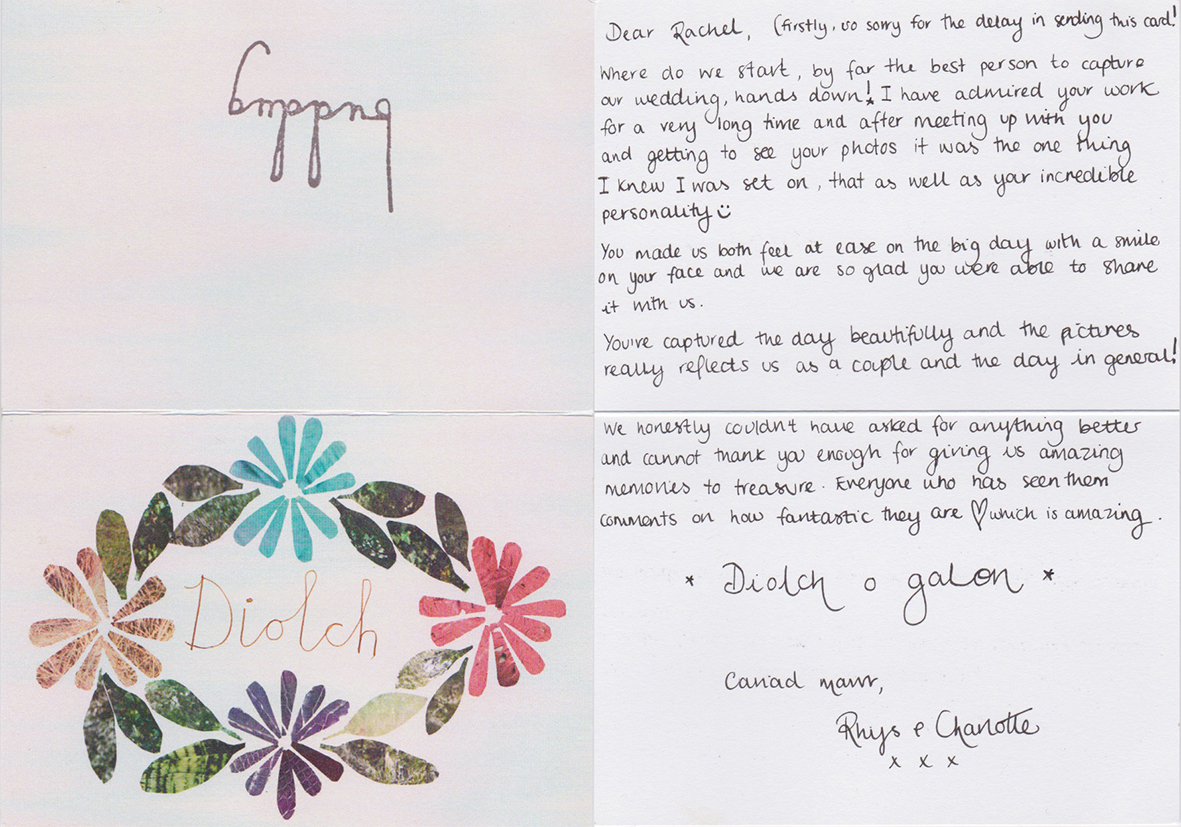 buddug
Diolch
Dear Rachel, (firstly, so sorry for the delay in sending this card!
Where do we start, by far the best person to capture
our wedding, hands down! I have admired your work
for a very long time and after meeting up with you
and getting to see your photos it was the one thing
I knew I was set on, that as well as your incredible
personality ☺
You made us both feel at ease on the big day with a smile
on your face and we are so glad you were able to share
it with us.
You've captured the day beautifully and the pictures
really reflects us as a couple and the day in general!
We honestly couldn't have asked for anything better
and cannot thank you enough for giving us amazing
memories to treasure. Everyone who has seen them
comments on how fantastic they are ♡ which is amazing.
* Diolch o galon *
Cariad mawr,
Rhys & Charlotte
x x x